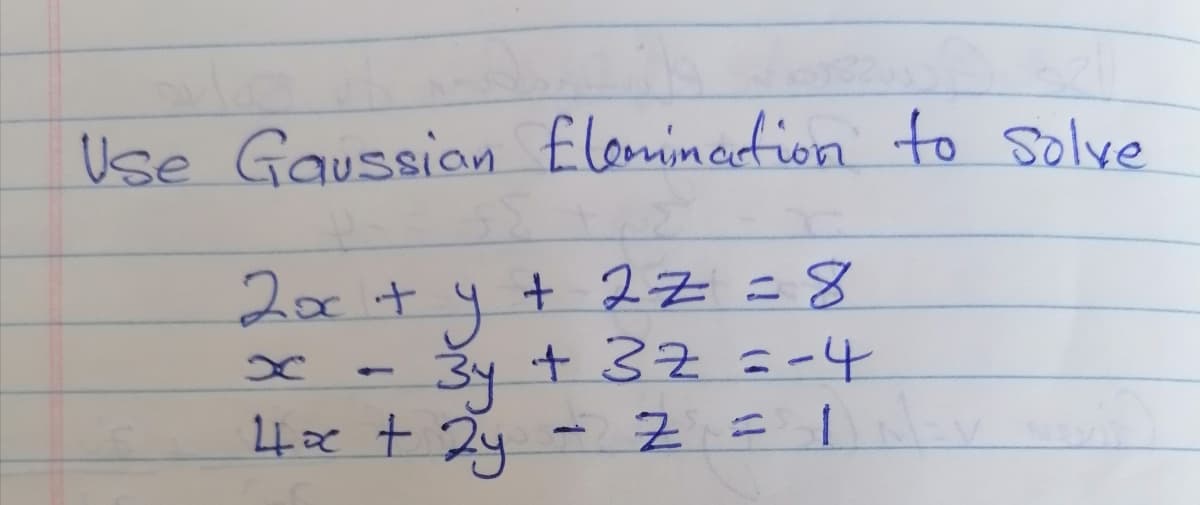 Use Gaussian Elemination to solve
2x + y + 2z = 8
x - 3y + 3z = -4
4x + 2y - z = 1